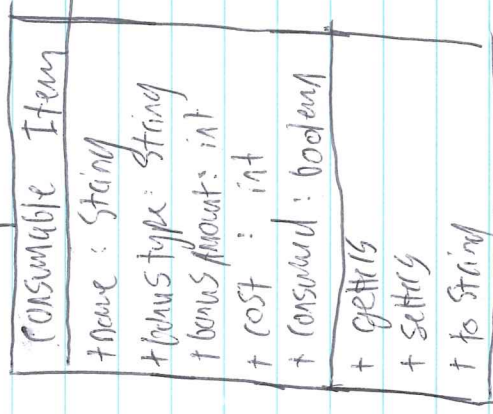 Consumable Item
+ name : String
+ bonus type : String
+ bonus Amount : int
+ cost : int
+ consumed : boolean
+ getters
+ setters
+ to String